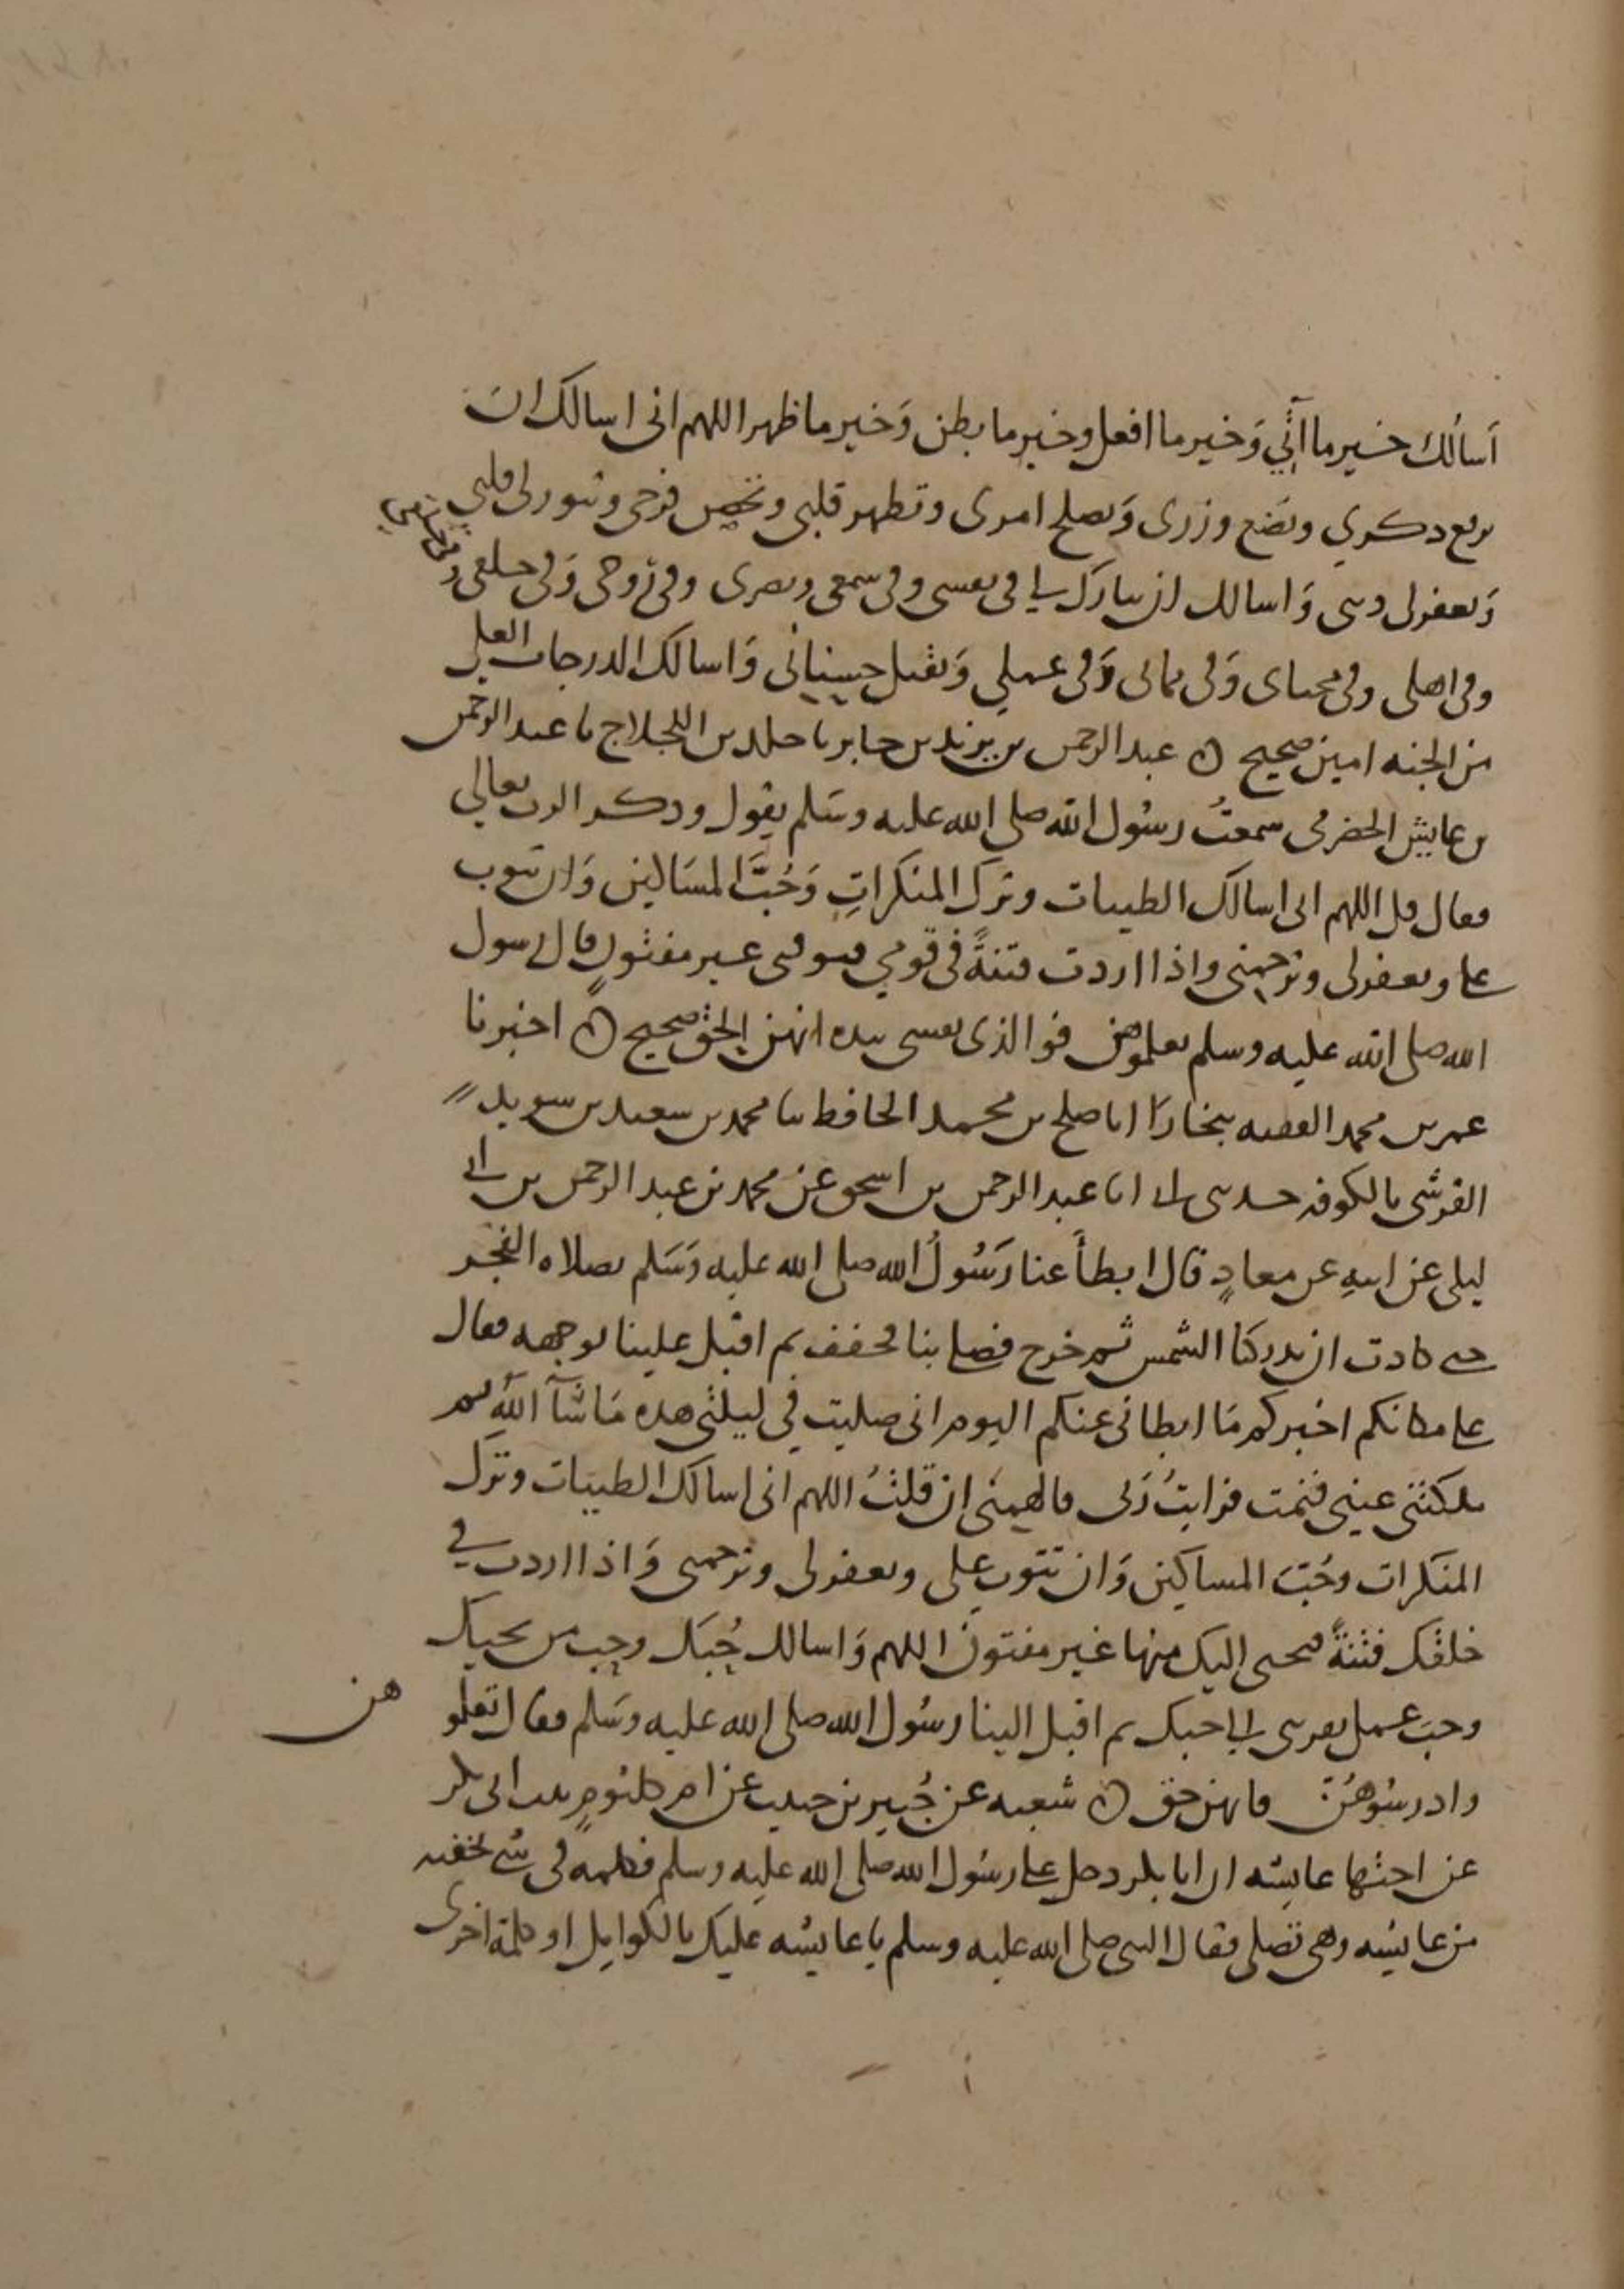 أسألك خير ما آتي وخير ما افعل وخير ما بطن وخير ما ظهر اللهم اني اسالك ان
ترفع ذكري وتضع وزري وتصلح امري وتطهر قلبي وتحصن فرجي وتنور لي قلبي
وتغفر لي ذنبي واسالك ان تبارك لي في نفسي وفي سمعي وبصري وفي روحي وفي خلقي وفي
وفي اهلي وفي محياي وفي مماتي وفي عملي وتقبل حسناتي واسالك الدرجات العلى
من الجنه امين صحيح ه عبد الرحمن بن يزيد بن جابر نا خلد بن اللجلاج نا عبد الرحمن
بن عايش الحضرمي سمعت رسول الله صلى الله عليه وسلم يقول وذكر الرب تعالى
فقال قل اللهم اني اسالك الطيبات وترك المنكرات وحب المساكين وان تتوب
علي وتغفر لي وترحمني واذا اردت فتنة في قومي فتوفني غير مفتون قال رسول
الله صلى الله عليه وسلم تعلموهن فوالذي نفسي بيده انهن لحق صحيح ه اخبرنا
عمر بن محمد الفقيه ببخارا انا صلح بن محمد الحافظ نا محمد بن سعيد بن سويد
القرشي بالكوفه حدثني ابي انا عبد الرحمن بن اسحق عن محمد بن عبد الرحمن بن ابي
ليلى عن ابيه عن معاذ قال ابطأ عنا رسول الله صلى الله عليه وسلم بصلاه الفجر
حتى كادت ان تدركنا الشمس ثم خرج فصلى بنا فخفف ثم اقبل علينا بوجهه فقال
على مكانكم اخبركم ما ابطاني عنكم اليوم اني صليت في ليلتي هذه ما شآ الله ثم
ملكتني عيني فنمت فرايت ربي فالهمني ان قلت اللهم اني اسالك الطيبات وترك
المنكرات وحب المساكين وان تتوب علي وتغفر لي وترحمني واذا اردت في
خلقك فتنة فنجني اليك منها غير مفتون اللهم واسالك حبك وحب من يحبك
وحب عمل يقربني الى حبك ثم اقبل الينا رسول الله صلى الله عليه وسلم فقال تعلمو هن
وادرسوهن فانهن حق ه شعبه عن جبير بن حبيب عن ام كلثوم بنت ابي بكر
عن اختها عايشه ان ابا بكر دخل على رسول الله صلى الله عليه وسلم فكلمه في شي يخفيه
من عايشه وهي تصلي فقال النبي صلى الله عليه وسلم يا عايشه عليك بالكوامل او كلمة اخرى